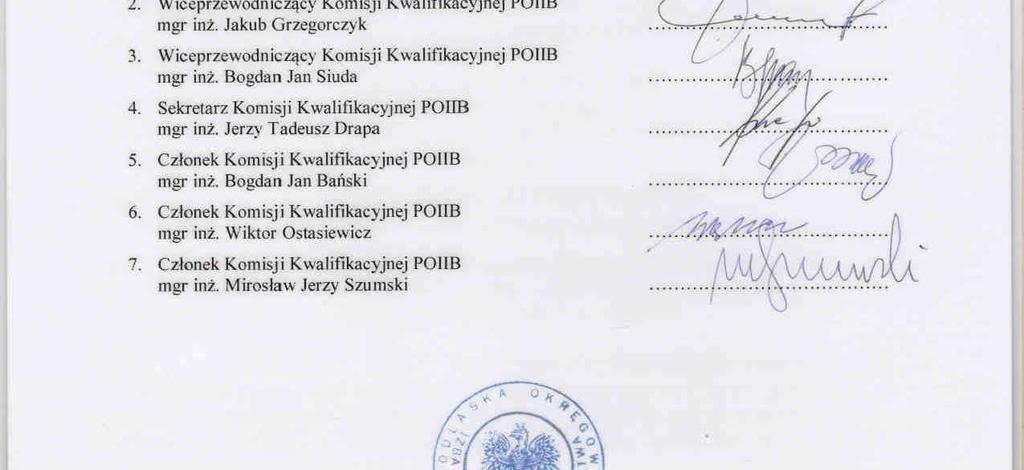 2. Wiceprzewodniczący Komisji Kwalifikacyjnej POIIB
mgr inż. Jakub Grzegorczyk
3. Wiceprzewodniczący Komisji Kwalifikacyjnej POIIB
mgr inż. Bogdan Jan Siuda
4. Sekretarz Komisji Kwalifikacyjnej POIIB
mgr inż. Jerzy Tadeusz Drapa
5. Członek Komisji Kwalifikacyjnej POIIB
mgr inż. Bogdan Jan Bański
6. Członek Komisji Kwalifikacyjnej POIIB
mgr inż. Wiktor Ostasiewicz
7. Członek Komisji Kwalifikacyjnej POIIB
mgr inż. Mirosław Jerzy Szumski
ODLASKA OKRĘGOW
IZBA TWA